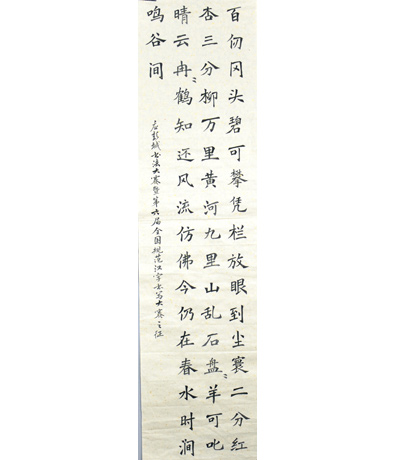 百仞冈头碧可攀凭栏放眼到尘寰二分红
杏三分柳万里黄河九里山乱石盘〻羊可叱
晴云冉〻鹤知还风流仿佛今仍在春水时涧
鸣谷间
应彭城书法大赛暨第六届全国规范汉字书写大赛之征